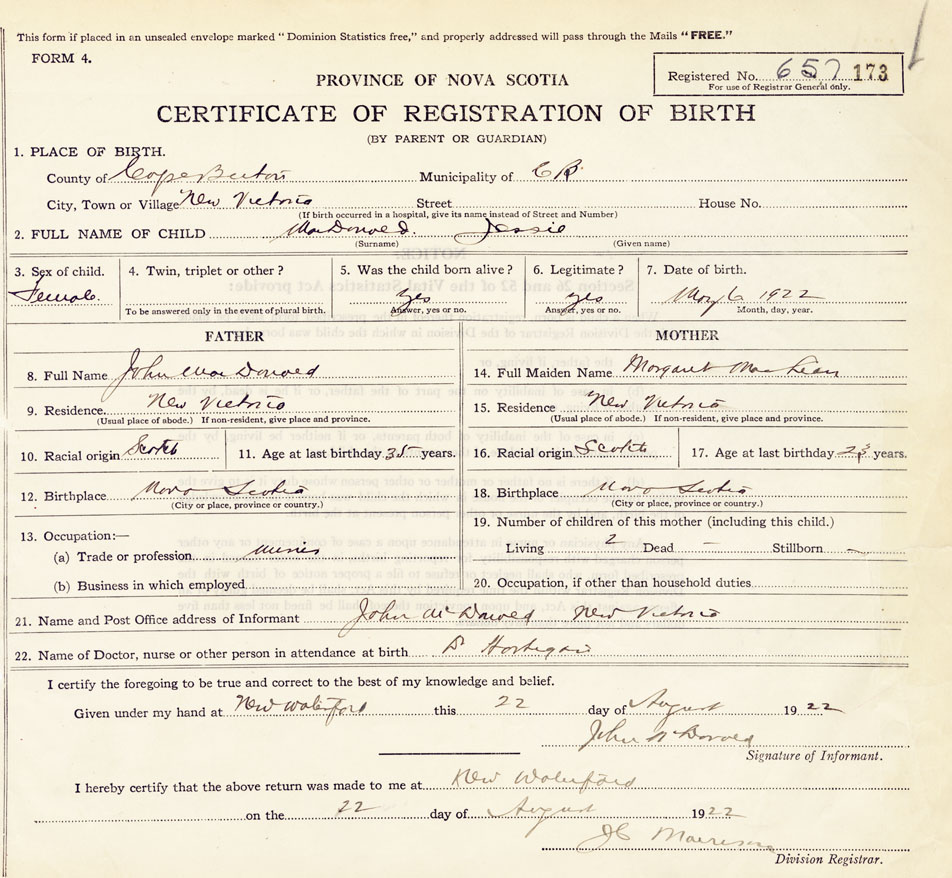 This form if placed in an unsealed envelope marked "Dominion Statistics free," and properly addressed will pass through the Mails "FREE."
FORM 4.
Registered No. 657 173
For use of Registrar General only.
PROVINCE OF NOVA SCOTIA
CERTIFICATE OF REGISTRATION OF BIRTH
(BY PARENT OR GUARDIAN)
1. PLACE OF BIRTH.
County of Cape Breton Municipality of C B
City, Town or Village New Victoria Street House No.
(If birth occurred in a hospital, give its name instead of Street and Number)
2. FULL NAME OF CHILD MacDonald. Jessie
(Surname) (Given name)
3. Sex of child. 4. Twin, triplet or other? 5. Was the child born alive? 6. Legitimate? 7. Date of birth.
Female. yes yes May 6 1922
To be answered only in the event of plural birth. Answer, yes or no. Answer, yes or no. Month, day, year.
FATHER MOTHER
8. Full Name John MacDonald 14. Full Maiden Name Margaret MacLean
9. Residence. New Victoria 15. Residence New Victoria
(Usual place of abode.) If non-resident, give place and province. (Usual place of abode.) If non-resident, give place and province.
10. Racial origin Scotch 11. Age at last birthday 35 years. 16. Racial origin Scotch 17. Age at last birthday years.
12. Birthplace Nova Scotia 18. Birthplace Nova Scotia
(City or place, province or country.) (City or place, province or country.)
13. Occupation:— 19. Number of children of this mother (including this child.)
(a) Trade or profession Miner Living 2 Dead — Stillborn —
(b) Business in which employed 20. Occupation, if other than household duties
21. Name and Post Office address of Informant John McDonald New Victoria
22. Name of Doctor, nurse or other person in attendance at birth Dr
I certify the foregoing to be true and correct to the best of my knowledge and belief.
Given under my hand at New Waterford this 22 day of August 1922
John McDonald
Signature of Informant.
I hereby certify that the above return was made to me at New Waterford
on the 22 day of August 1922
J C Morrison
Division Registrar.